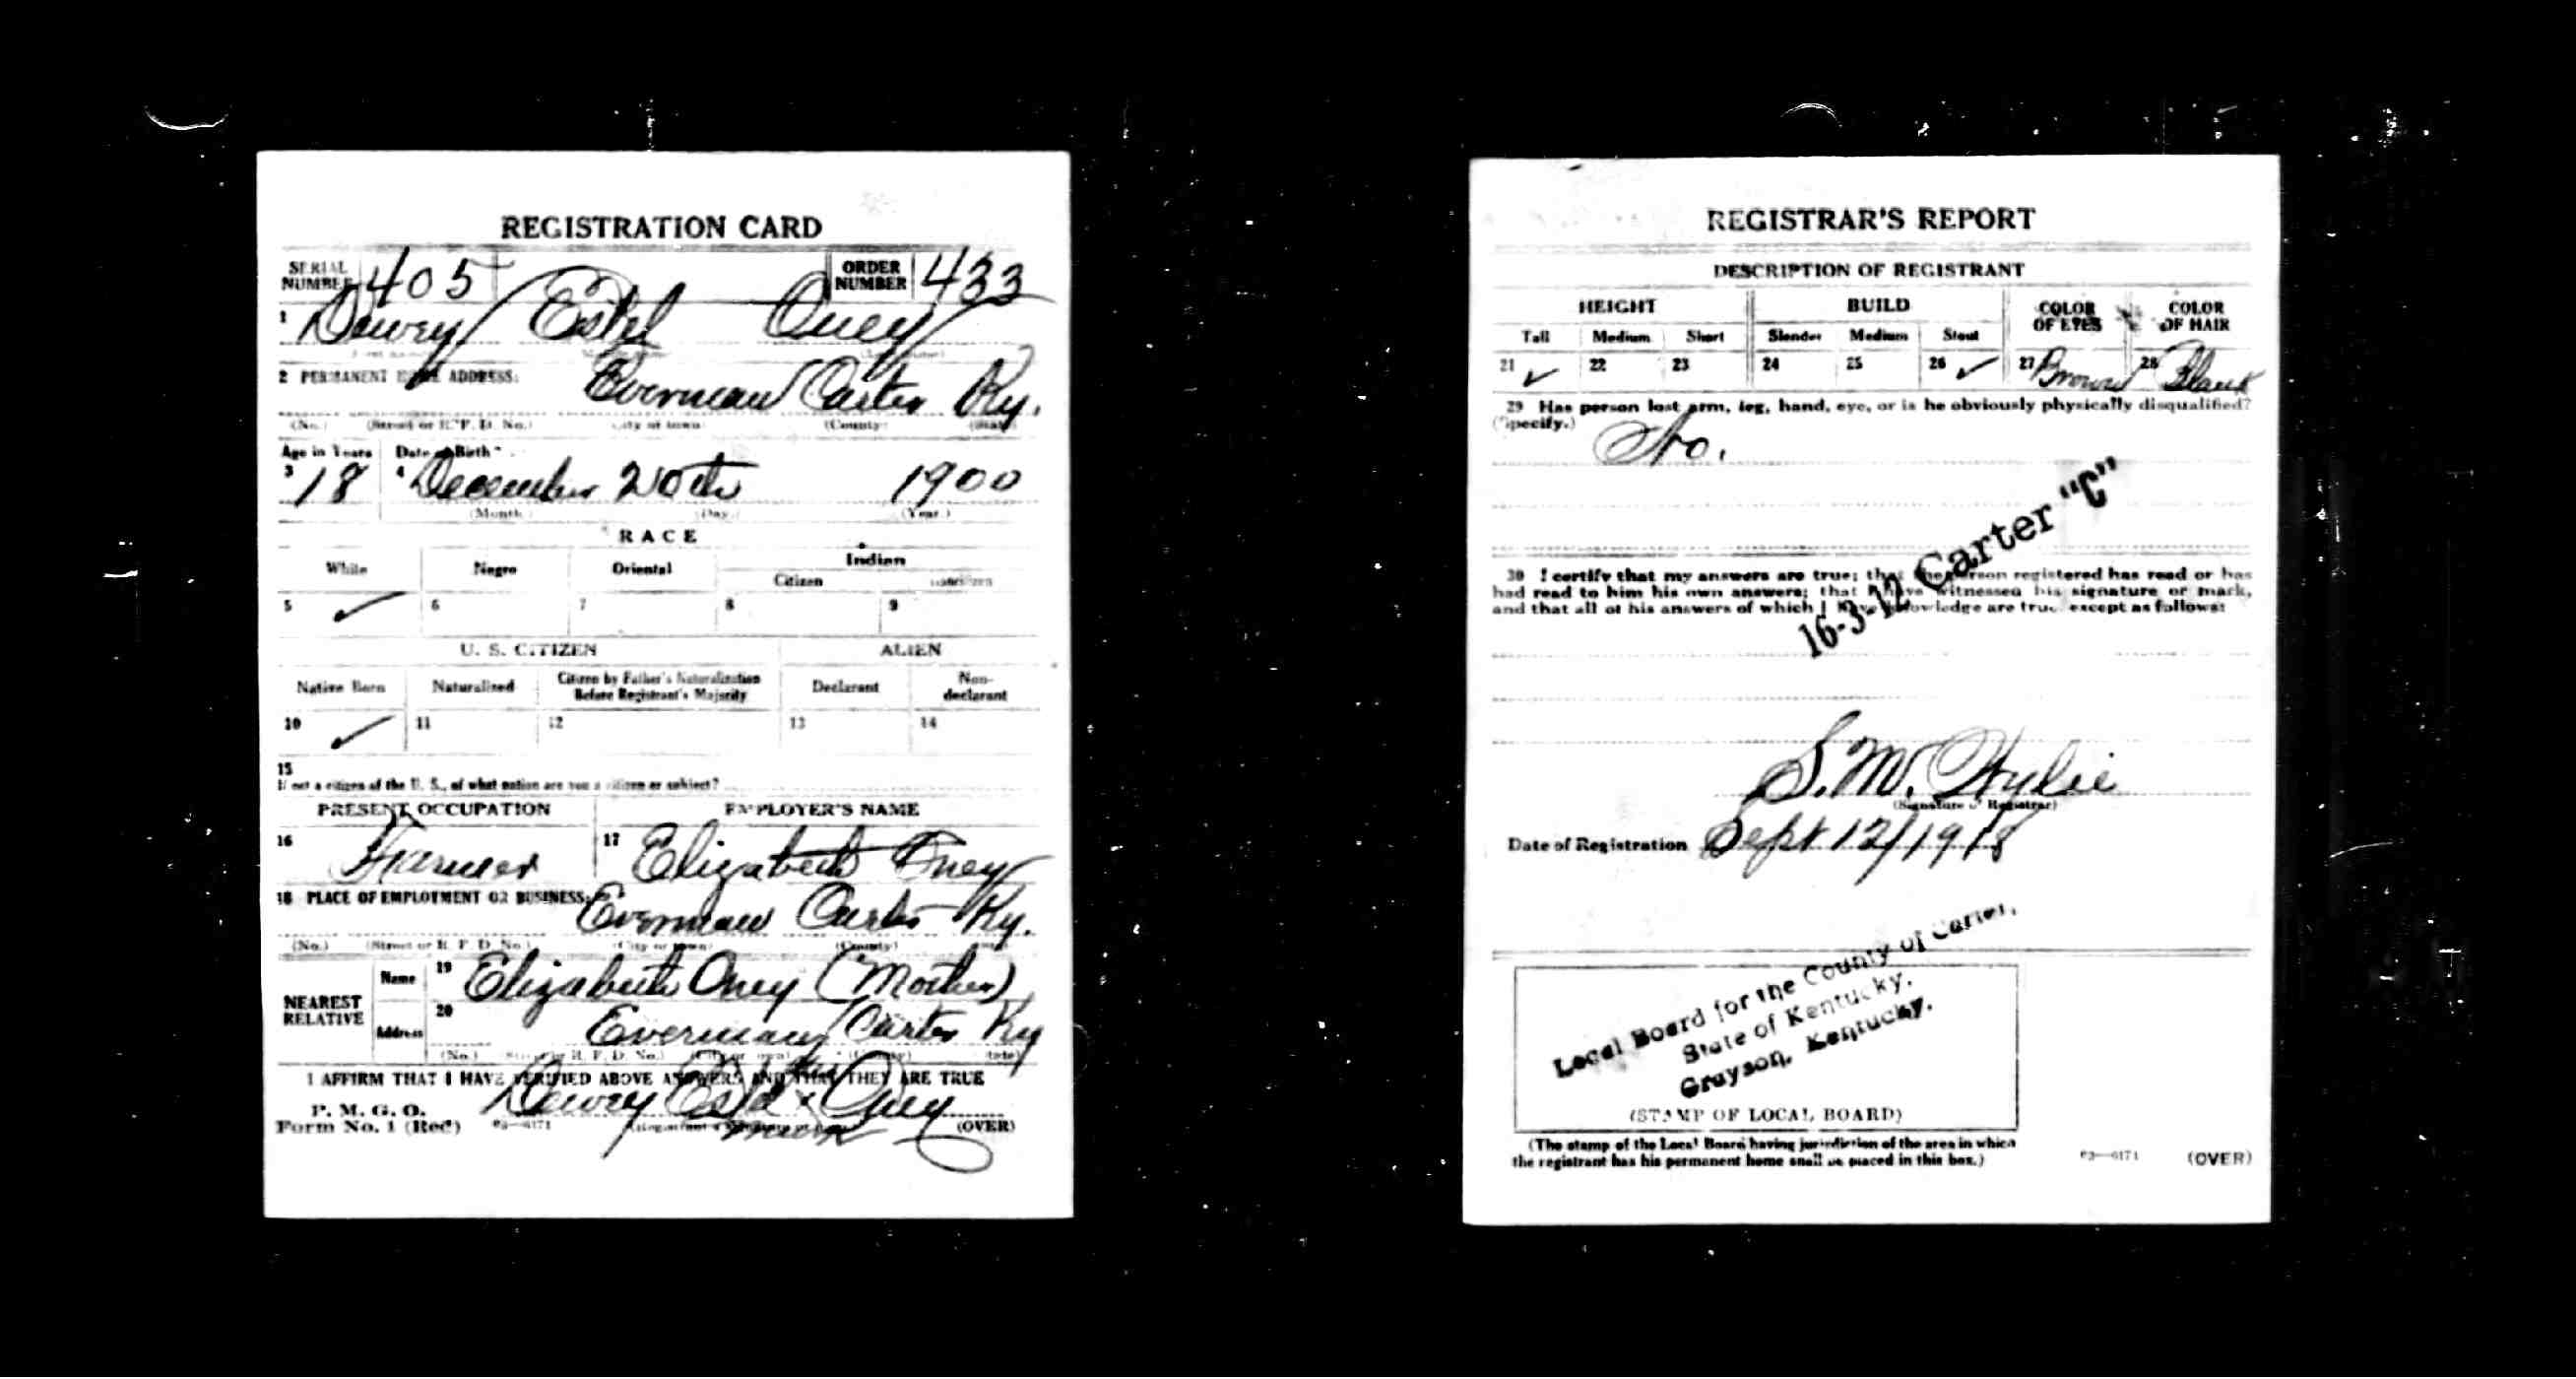 REGISTRATION CARD
SERIAL NUMBER 405 ORDER NUMBER 433
1 Dewey Estel Oney
2 PERMANENT HOME ADDRESS: Everman Carter Ky.
(No.) (Street or R. F. D. No.) (City or town) (County) (State)
Age in Years Date of Birth
3 18 4 December 20th 1900
(Month) (Day) (Year)
RACE
White Negro Oriental Indian
Citizen Noncitizen
5 ✓ 6 7 8 9
U. S. CITIZEN ALIEN
Native Born Naturalized Citizen by Father's Naturalization Before Registrant's Majority Declarant Non-declarant
10 ✓ 11 12 13 14
15
If not a citizen of the U. S., of what nation are you a citizen or subject?
PRESENT OCCUPATION EMPLOYER'S NAME
16 Farmer 17 Elizabeth Oney
18 PLACE OF EMPLOYMENT OR BUSINESS: Everman Carter Ky.
(No.) (Street or R. F. D. No.) (City or town) (County)
NEAREST RELATIVE Name 19 Elizabeth Oney (Mother)
Address 20 Everman Carter Ky
(No.) (Street or R. F. D. No.) (City or town) (County) (State)
I AFFIRM THAT I HAVE VERIFIED ABOVE ANSWERS AND THAT THEY ARE TRUE
P. M. G. O.
Form No. 1 (Red) 03—6171 Dewey Estel his x mark Oney (OVER)
REGISTRAR'S REPORT
DESCRIPTION OF REGISTRANT
HEIGHT BUILD COLOR OF EYES COLOR OF HAIR
Tall Medium Short Slender Medium Stout
21 ✓ 22 23 24 25 26 ✓ 27 Brown 28 Black
29 Has person lost arm, leg, hand, eye, or is he obviously physically disqualified?
(Specify.) No.
16-3-12 Carter "C"
30 I certify that my answers are true; that the person registered has read or has
had read to him his own answers; that I have witnessed his signature or mark,
and that all of his answers of which I have knowledge are true, except as follows:
S. M. Wylie
(Signature of Registrar)
Date of Registration Sept 12/1918
Local Board for the County of Carter,
State of Kentucky,
Grayson, Kentucky.
(STAMP OF LOCAL BOARD)
(The stamp of the Local Board having jurisdiction of the area in which
the registrant has his permanent home shall be placed in this box.)
03—6171 (OVER)